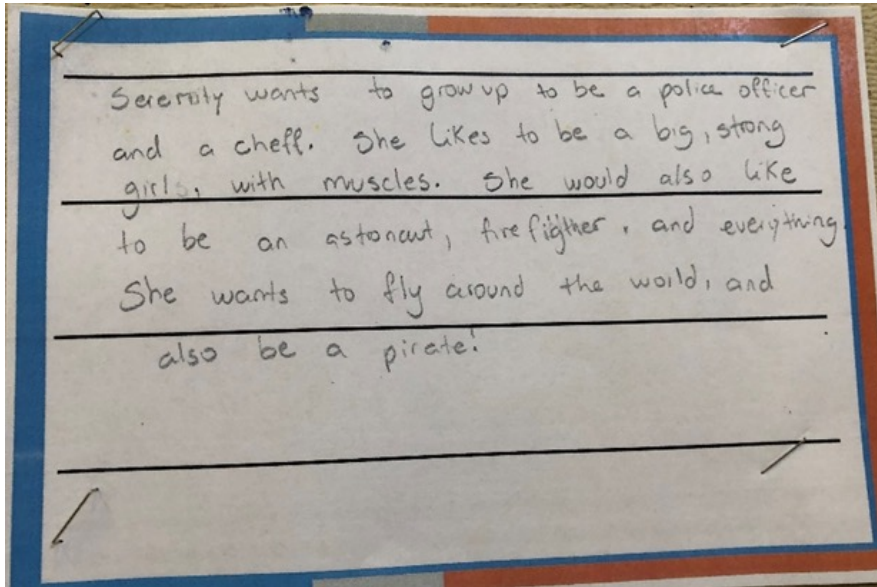 Serenity wants to grow up to be a police officer
and a cheff. She likes to be a big, strong
girl, with muscles. She would also like
to be an astonaut, firefigther, and everything.
She wants to fly around the world, and
also be a pirate!